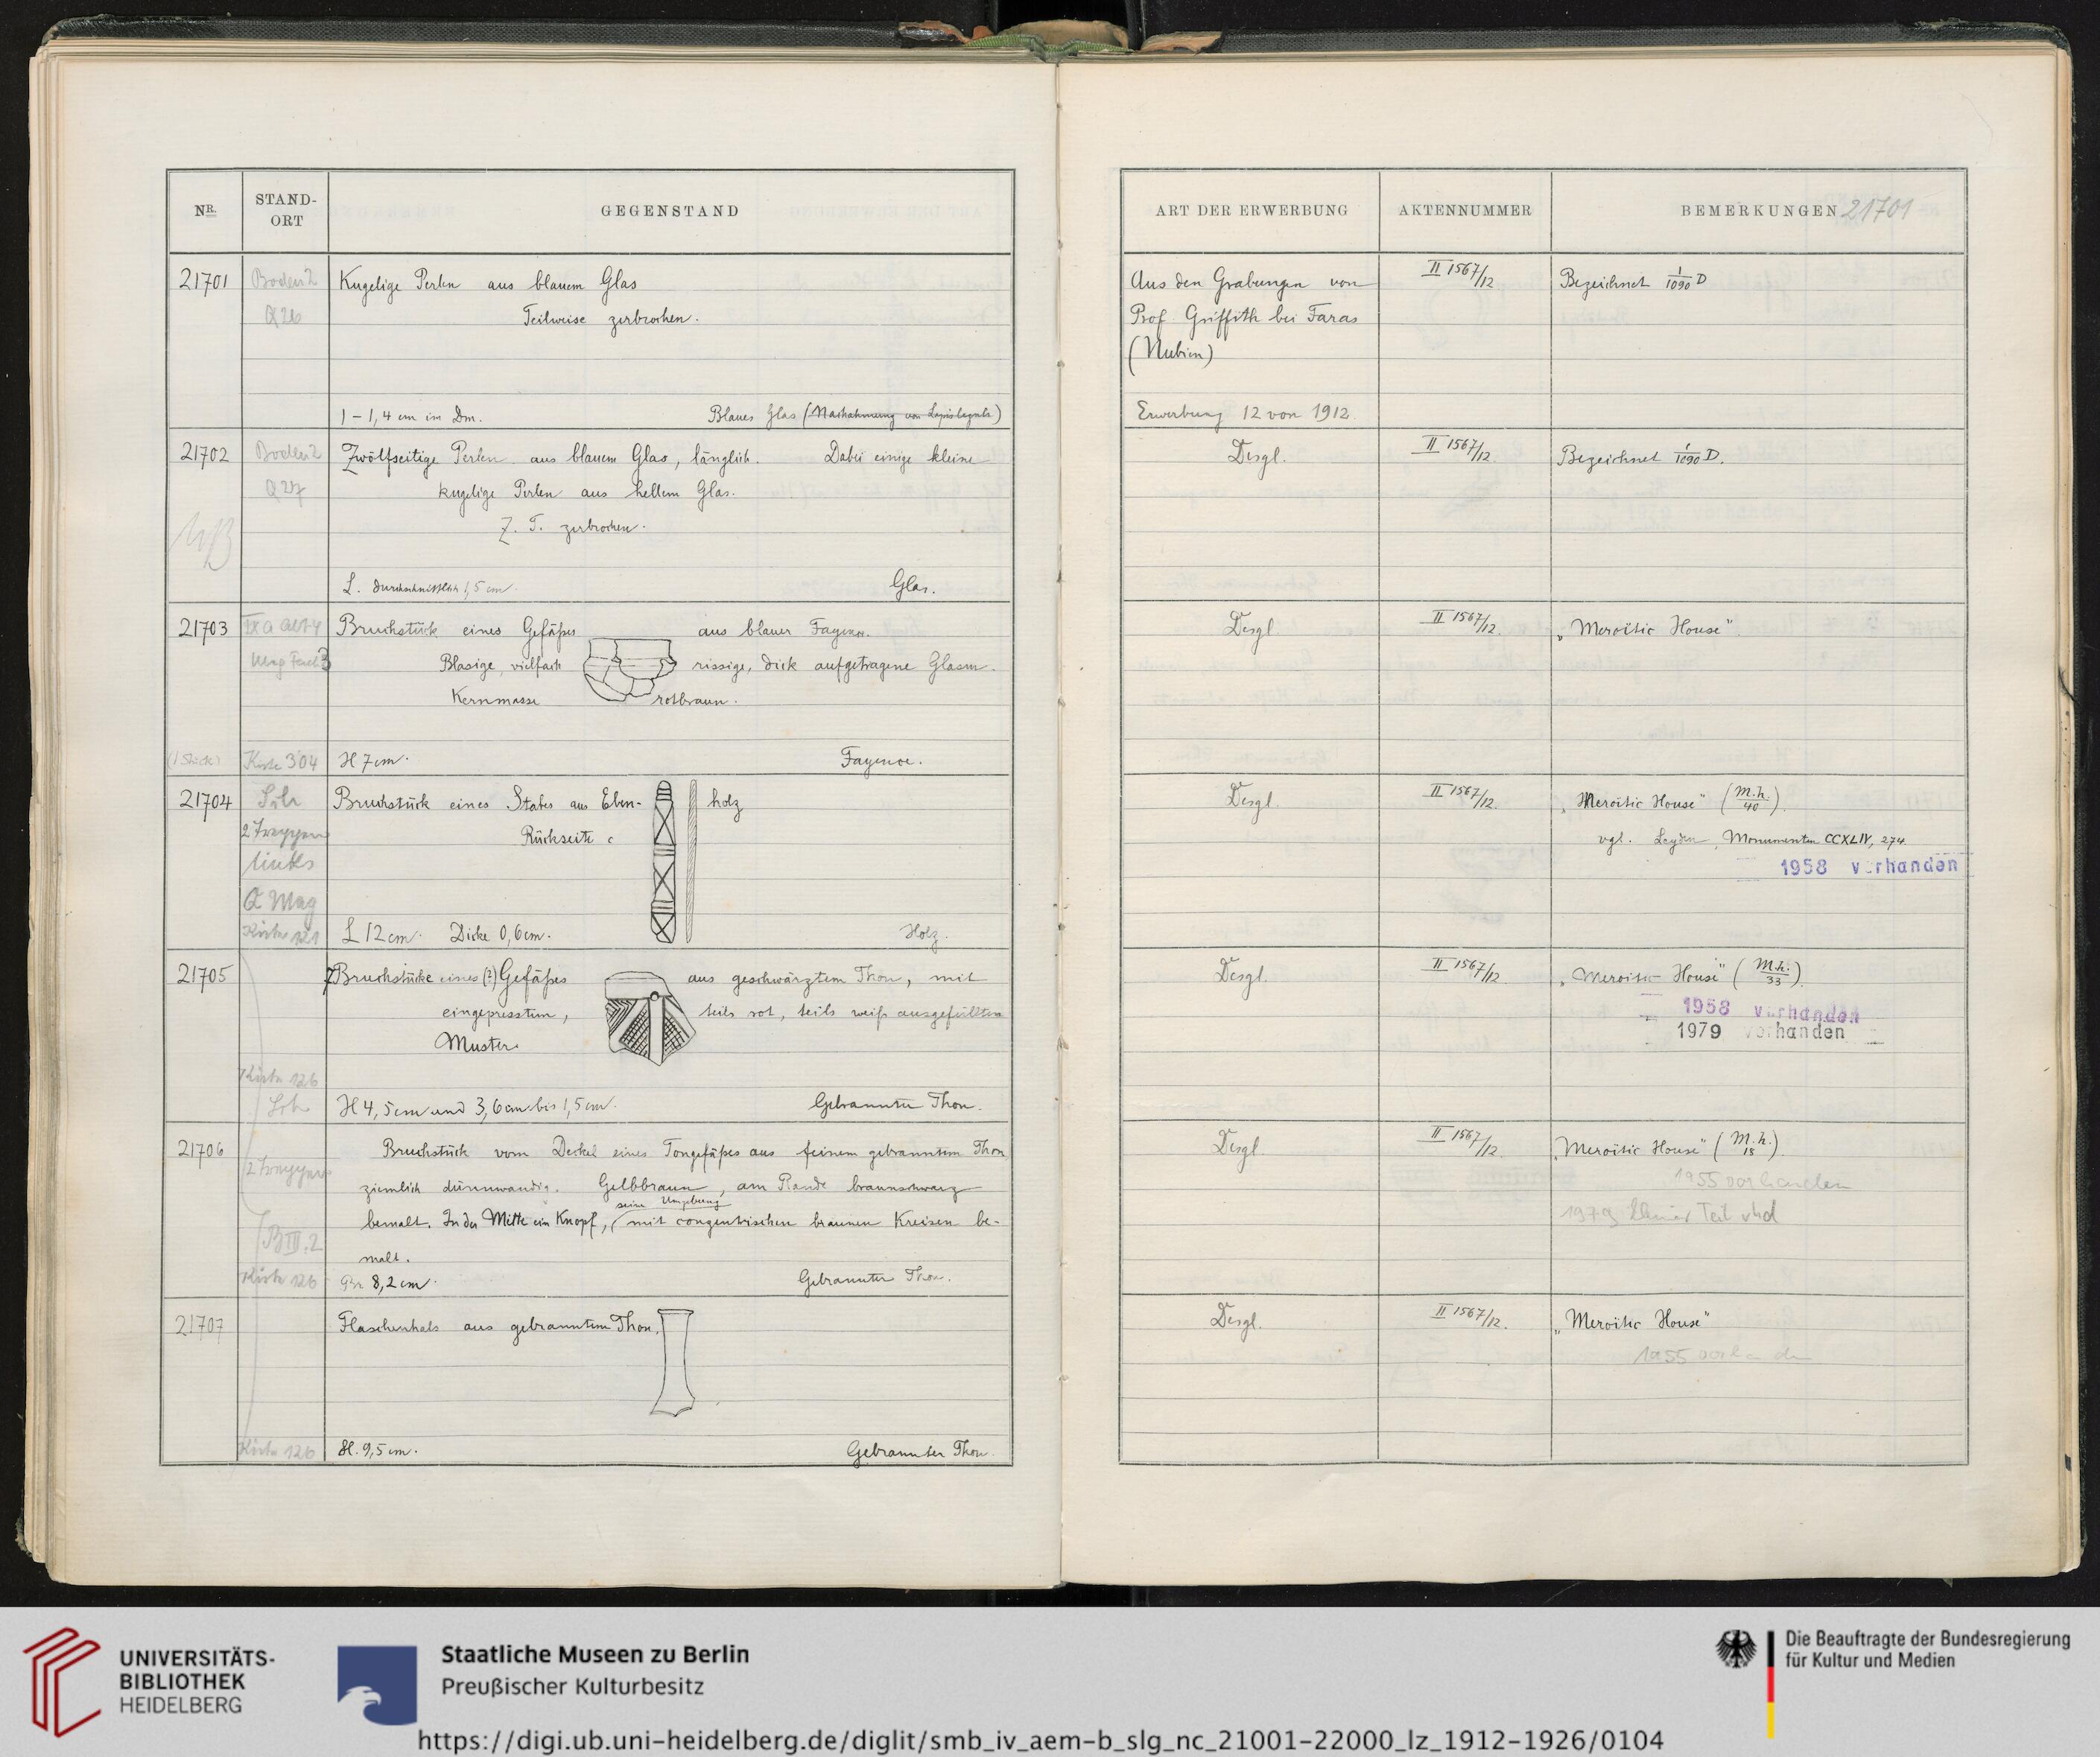 NR.
STAND-
ORT
GEGENSTAND
21701
Boden 2
Q 26
Kugelige Perlen aus blauem Glas
Teilweise zerbrochen.
1 – 1,4 cm im Dm.
Blaues Glas (Nachahmung von Lapislazuli)
21702
Boden 2
Q 27
Zwölfseitige Perlen aus blauem Glas, länglich. Dabei einige kleine
kugelige Perlen aus hellem Glas.
Z. T. zerbrochen.
L. durchschnittlich 1,5 cm.
Glas.
21703
Bruchstück eines Gefäßes aus blauer Fayence.
Blasige, vielfach rissige, dick aufgetragene Glasur.
Kernmasse rotbraun.
(1 Stück)
Kiste 304
H 7 cm.
Fayence.
21704
2 Treppen
links
Q Mag
Kiste 121
Bruchstück eines Stabes aus Eben- holz
Rückseite
L 12 cm. Dicke 0,6 cm.
Holz.
21705
7 Bruchstücke eines (?) Gefäßes aus geschwärztem Thon, mit
eingepresstem, teils rot, teils weiß ausgefülltem
Muster.
Kiste 126
H 4,5 cm und 3,6 cm bis 1,5 cm.
Gebrannter Thon.
21706
2 Treppen
B III. 2
Kiste 126
Bruchstück vom Deckel eines Tongefäßes aus feinem gebranntem Thon,
ziemlich dünnwandig. Gelbbraun, am Rande braunschwarz
seine Umgebung
bemalt. In der Mitte ein Knopf, mit conzentrischen braunen Kreisen be-
malt.
Gr 8,2 cm.
Gebrannter Thon.
21707
Kiste 126
Flaschenhals aus gebranntem Thon.
H. 9,5 cm.
Gebrannter Thon.
ART DER ERWERBUNG
AKTENNUMMER
BEMERKUNGEN 21701
Aus den Grabungen von
Prof. Griffith bei Faras
(Nubien)
Erwerbung 12 von 1912
II 1567/12
Bezeichnet 1/1090 D
Desgl.
II 1567/12.
Bezeichnet 1/1090 D.
Desgl
II 1567/12.
„Meroitic House"
Desgl.
II 1567/12.
„Meroitic House" (M.h./40).
vgl. Leyden, Monumenten CCXLIV, 274
1958 vorhanden
Desgl.
II 1567/12.
„Meroitic House" (M.h./33).
1958 vorhanden
1979 vorhanden
Desgl
II 1567/12.
„Meroitic House" (M.h./18).
1955 vorhanden
1979 kleiner Teil vhd
Desgl.
II 1567/12.
„Meroitic House"
1955 vorhanden
UNIVERSITÄTS-
BIBLIOTHEK
HEIDELBERG
Staatliche Museen zu Berlin
Preußischer Kulturbesitz
Die Beauftragte der Bundesregierung
für Kultur und Medien
https://digi.ub.uni-heidelberg.de/diglit/smb_iv_aem-b_slg_nc_21001-22000_lz_1912-1926/0104